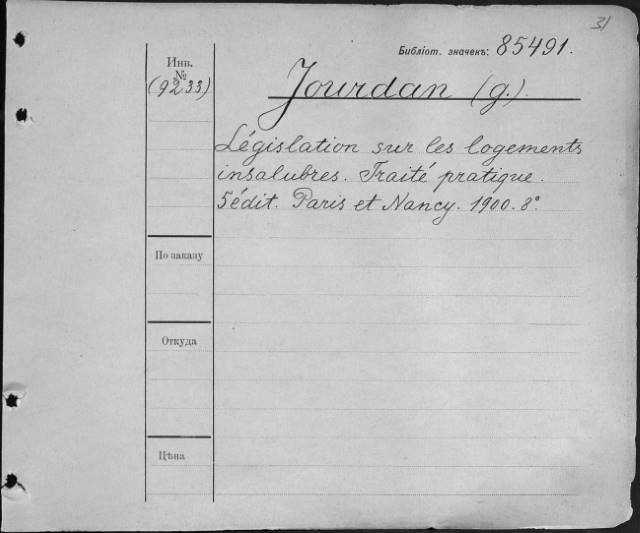 31
Библіот. значекъ: 85491.
Инв.
№
(9233)
Jourdan (G.).
Législation sur les logements
insalubres. Traité pratique.
5 édit. Paris et Nancy. 1900. 8°.
По заказу
Откуда
Цѣна